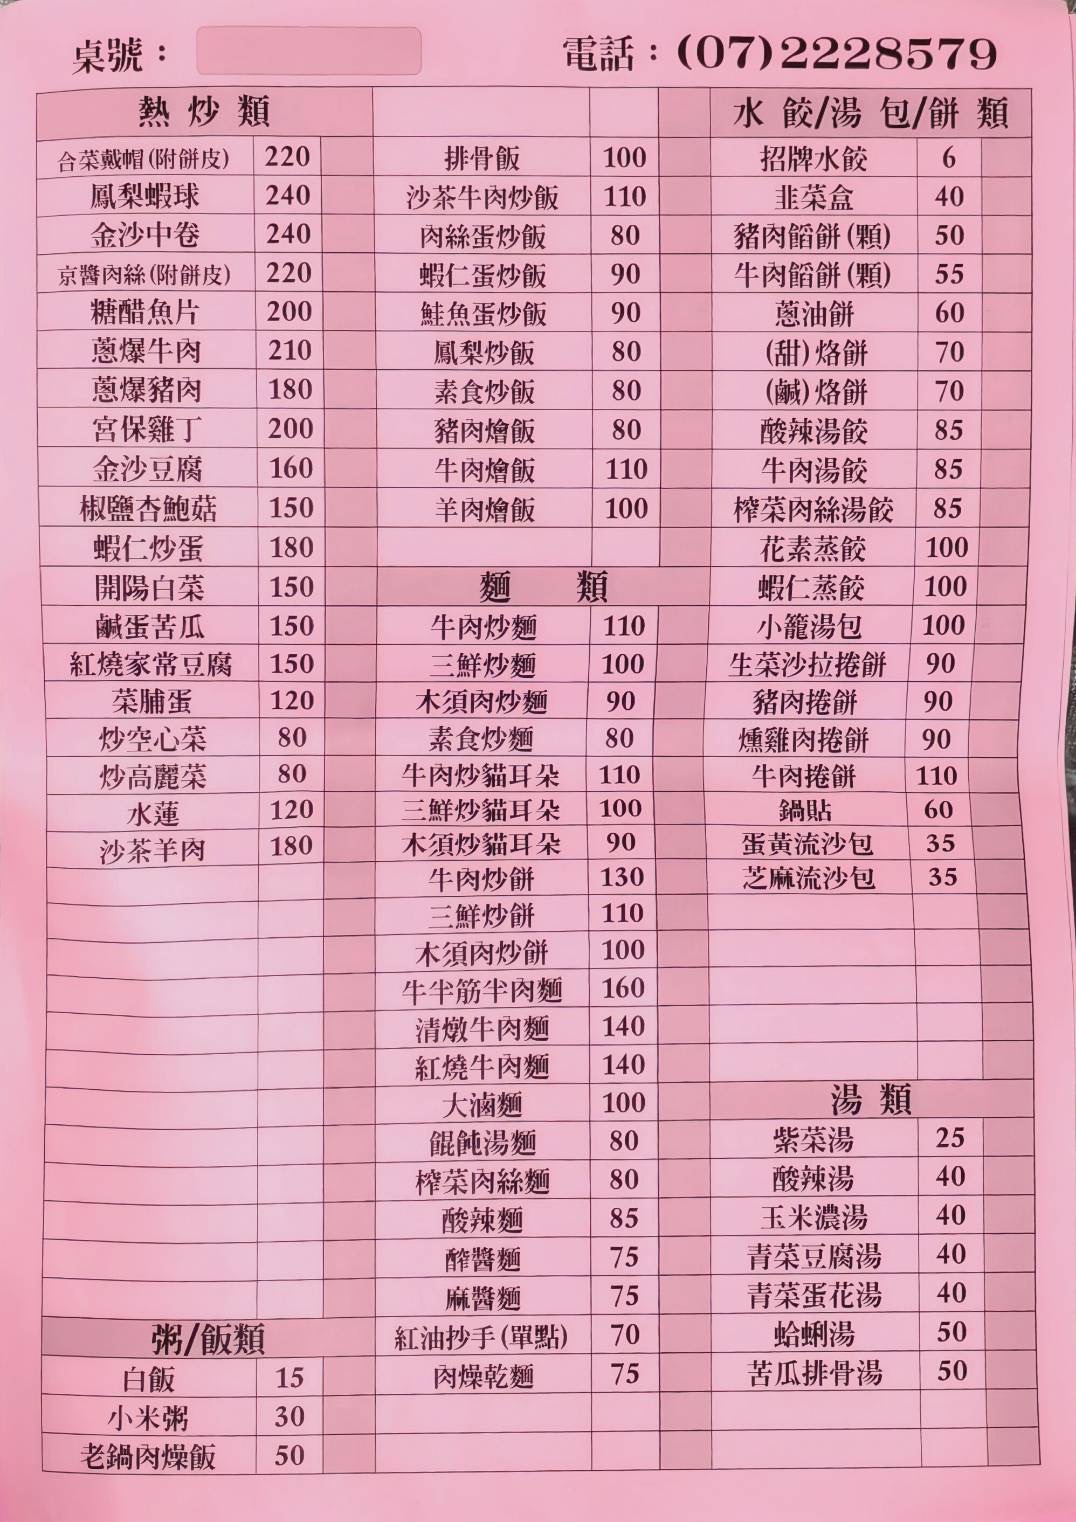 桌號：
電話：(07)2228579
熱炒類
合菜戴帽(附餅皮) 220
鳳梨蝦球 240
金沙中卷 240
京醬肉絲(附餅皮) 220
糖醋魚片 200
蔥爆牛肉 210
蔥爆豬肉 180
宮保雞丁 200
金沙豆腐 160
椒鹽杏鮑菇 150
蝦仁炒蛋 180
開陽白菜 150
鹹蛋苦瓜 150
紅燒家常豆腐 150
菜脯蛋 120
炒空心菜 80
炒高麗菜 80
水蓮 120
沙茶羊肉 180
粥/飯類
白飯 15
小米粥 30
老鍋肉燥飯 50
排骨飯 100
沙茶牛肉炒飯 110
肉絲蛋炒飯 80
蝦仁蛋炒飯 90
鮭魚蛋炒飯 90
鳳梨炒飯 80
素食炒飯 80
豬肉燴飯 80
牛肉燴飯 110
羊肉燴飯 100
麵 類
牛肉炒麵 110
三鮮炒麵 100
木須肉炒麵 90
素食炒麵 80
牛肉炒貓耳朵 110
三鮮炒貓耳朵 100
木須炒貓耳朵 90
牛肉炒餅 130
三鮮炒餅 110
木須肉炒餅 100
牛半筋半肉麵 160
清燉牛肉麵 140
紅燒牛肉麵 140
大滷麵 100
餛飩湯麵 80
榨菜肉絲麵 80
酸辣麵 85
酢醬麵 75
麻醬麵 75
紅油抄手(單點) 70
肉燥乾麵 75
水餃/湯包/餅類
招牌水餃 6
韭菜盒 40
豬肉餡餅(顆) 50
牛肉餡餅(顆) 55
蔥油餅 60
(甜)烙餅 70
(鹹)烙餅 70
酸辣湯餃 85
牛肉湯餃 85
榨菜肉絲湯餃 85
花素蒸餃 100
蝦仁蒸餃 100
小籠湯包 100
生菜沙拉捲餅 90
豬肉捲餅 90
燻雞肉捲餅 90
牛肉捲餅 110
鍋貼 60
蛋黃流沙包 35
芝麻流沙包 35
湯類
紫菜湯 25
酸辣湯 40
玉米濃湯 40
青菜豆腐湯 40
青菜蛋花湯 40
蛤蜊湯 50
苦瓜排骨湯 50